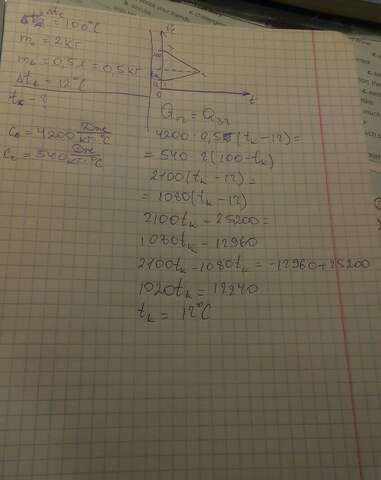 = 100°C
m = 2кг
mв = 0,5л = 0,5кг
Δtв = 12°C
tк - ?
Cв = 4200 Дж/кг·°C
Cс = 540 Дж/кг·°C
t
0
Qп = Qзг
4200 · 0,5(tк - 12) =
= 540 · 2(100 - tк)
2100(tк - 12) =
= 1080(tк - 12)
2100tк - 25200 =
1080tк - 12960
2100tк - 1080tк = -12960 + 25200
1020tк = 12240
tк = 12°C